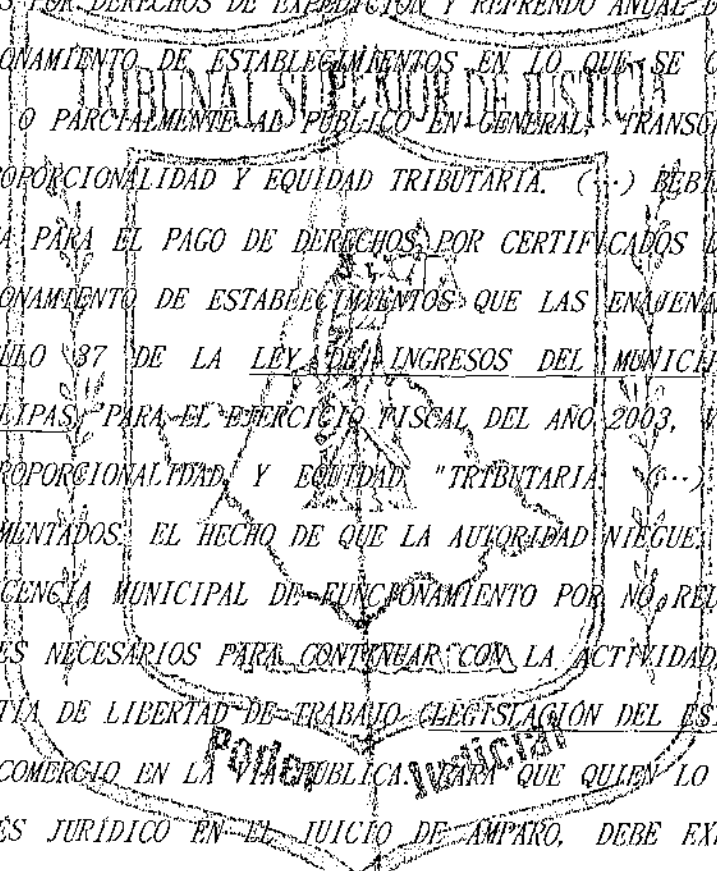 POR DERECHOS DE EXPEDICIÓN Y REFRENDO ANUAL
DE ESTABLECIMIENTOS EN LO QUE SE
TRIBUNAL SUPERIOR DE JUSTICIA
O PARCIALMENTE AL PÚBLICO EN GENERAL, TRANSG
OPORCIONALIDAD Y EQUIDAD TRIBUTARIA. (...) BEBI
PARA EL PAGO DE DERECHOS POR CERTIFICADOS
ONAMIENTO DE ESTABLECIMIENTOS QUE LAS ENAJENA
ULO 37 DE LA LEY DE INGRESOS DEL MUNICI
LIPAS, PARA EL EJERCICIO FISCAL DEL AÑO 2003,
ROPORCIONALIDAD Y EQUIDAD "TRIBUTARIA. (...)
MENTADOS. EL HECHO DE QUE LA AUTORIDAD NIEGUE
CENCIA MUNICIPAL DE FUNCIONAMIENTO POR NO REU
ES NECESARIOS PARA CONTINUAR CON LA ACTIVIDAD
TÍA DE LIBERTAD DE TRABAJO (LEGISLACIÓN DEL ES
Poder Judicial
COMERCIO EN LA VÍA PÚBLICA. PARA QUE QUIEN LO
ÉS JURÍDICO EN EL JUICIO DE AMPARO, DEBE EX